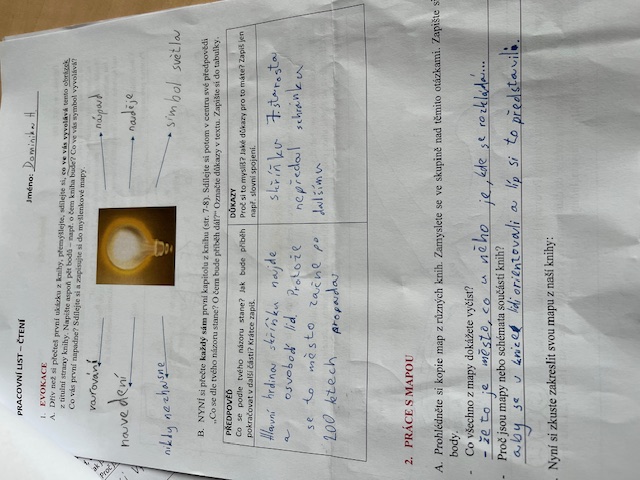 PRACOVNÍ LIST – ČTENÍ
Jméno: Dominika H
1. EVOKACE
A. Dřív než si přečteš první ukázku z knihy, přemýšlejte, sdílejte si, co ve vás vyvolává tento obrázek
z titulní strany knihy? Napište aspoň pět bodů – např. o čem kniha bude? Co ve vás symbol vyvolává?
Co vás první napadne? Sdílejte si a zapisujte si do myšlenkové mapy.
varování
navedení
nikdy nezhasne
nápad
naděje
simbol světla
B. NYNÍ si přečte každý sám první kapitolu z knihy (str. 7-8). Sdílejte si potom v centru své předpovědi
„Co se dle tvého názoru stane? O čem bude příběh dál?“ Označte důkazy v textu. Zapište si do tabulky.
PŘEDPOVĚĎ
Co se podle tvého názoru stane? Jak bude příběh
pokračovat v další části? Krátce zapiš.
Hlavní hrdina skříňku najde
a osvobodí lid. Protože
se to město začne po
200 letech propadat
DŮKAZY
Proč si to myslíš? Jaké důkazy pro to máte? Zapiš jen
např. slovní spojení.
skříňku 7. starosta
nepředal schránku
dalšímu
2. PRÁCE S MAPOU
A. Prohlédněte si kopie map z různých knih. Zamyslete se ve skupině nad těmito otázkami. Zapište si
body.
- Co všechno z mapy dokážete vyčíst?
- že to je město, co u něho je, kde se rozkládá...
- Proč jsou mapy nebo schémata součástí knih?
aby se v knize lidi orientovali a líp si to představili.
Nyní si zkuste zakreslit svou mapu z naší knihy: